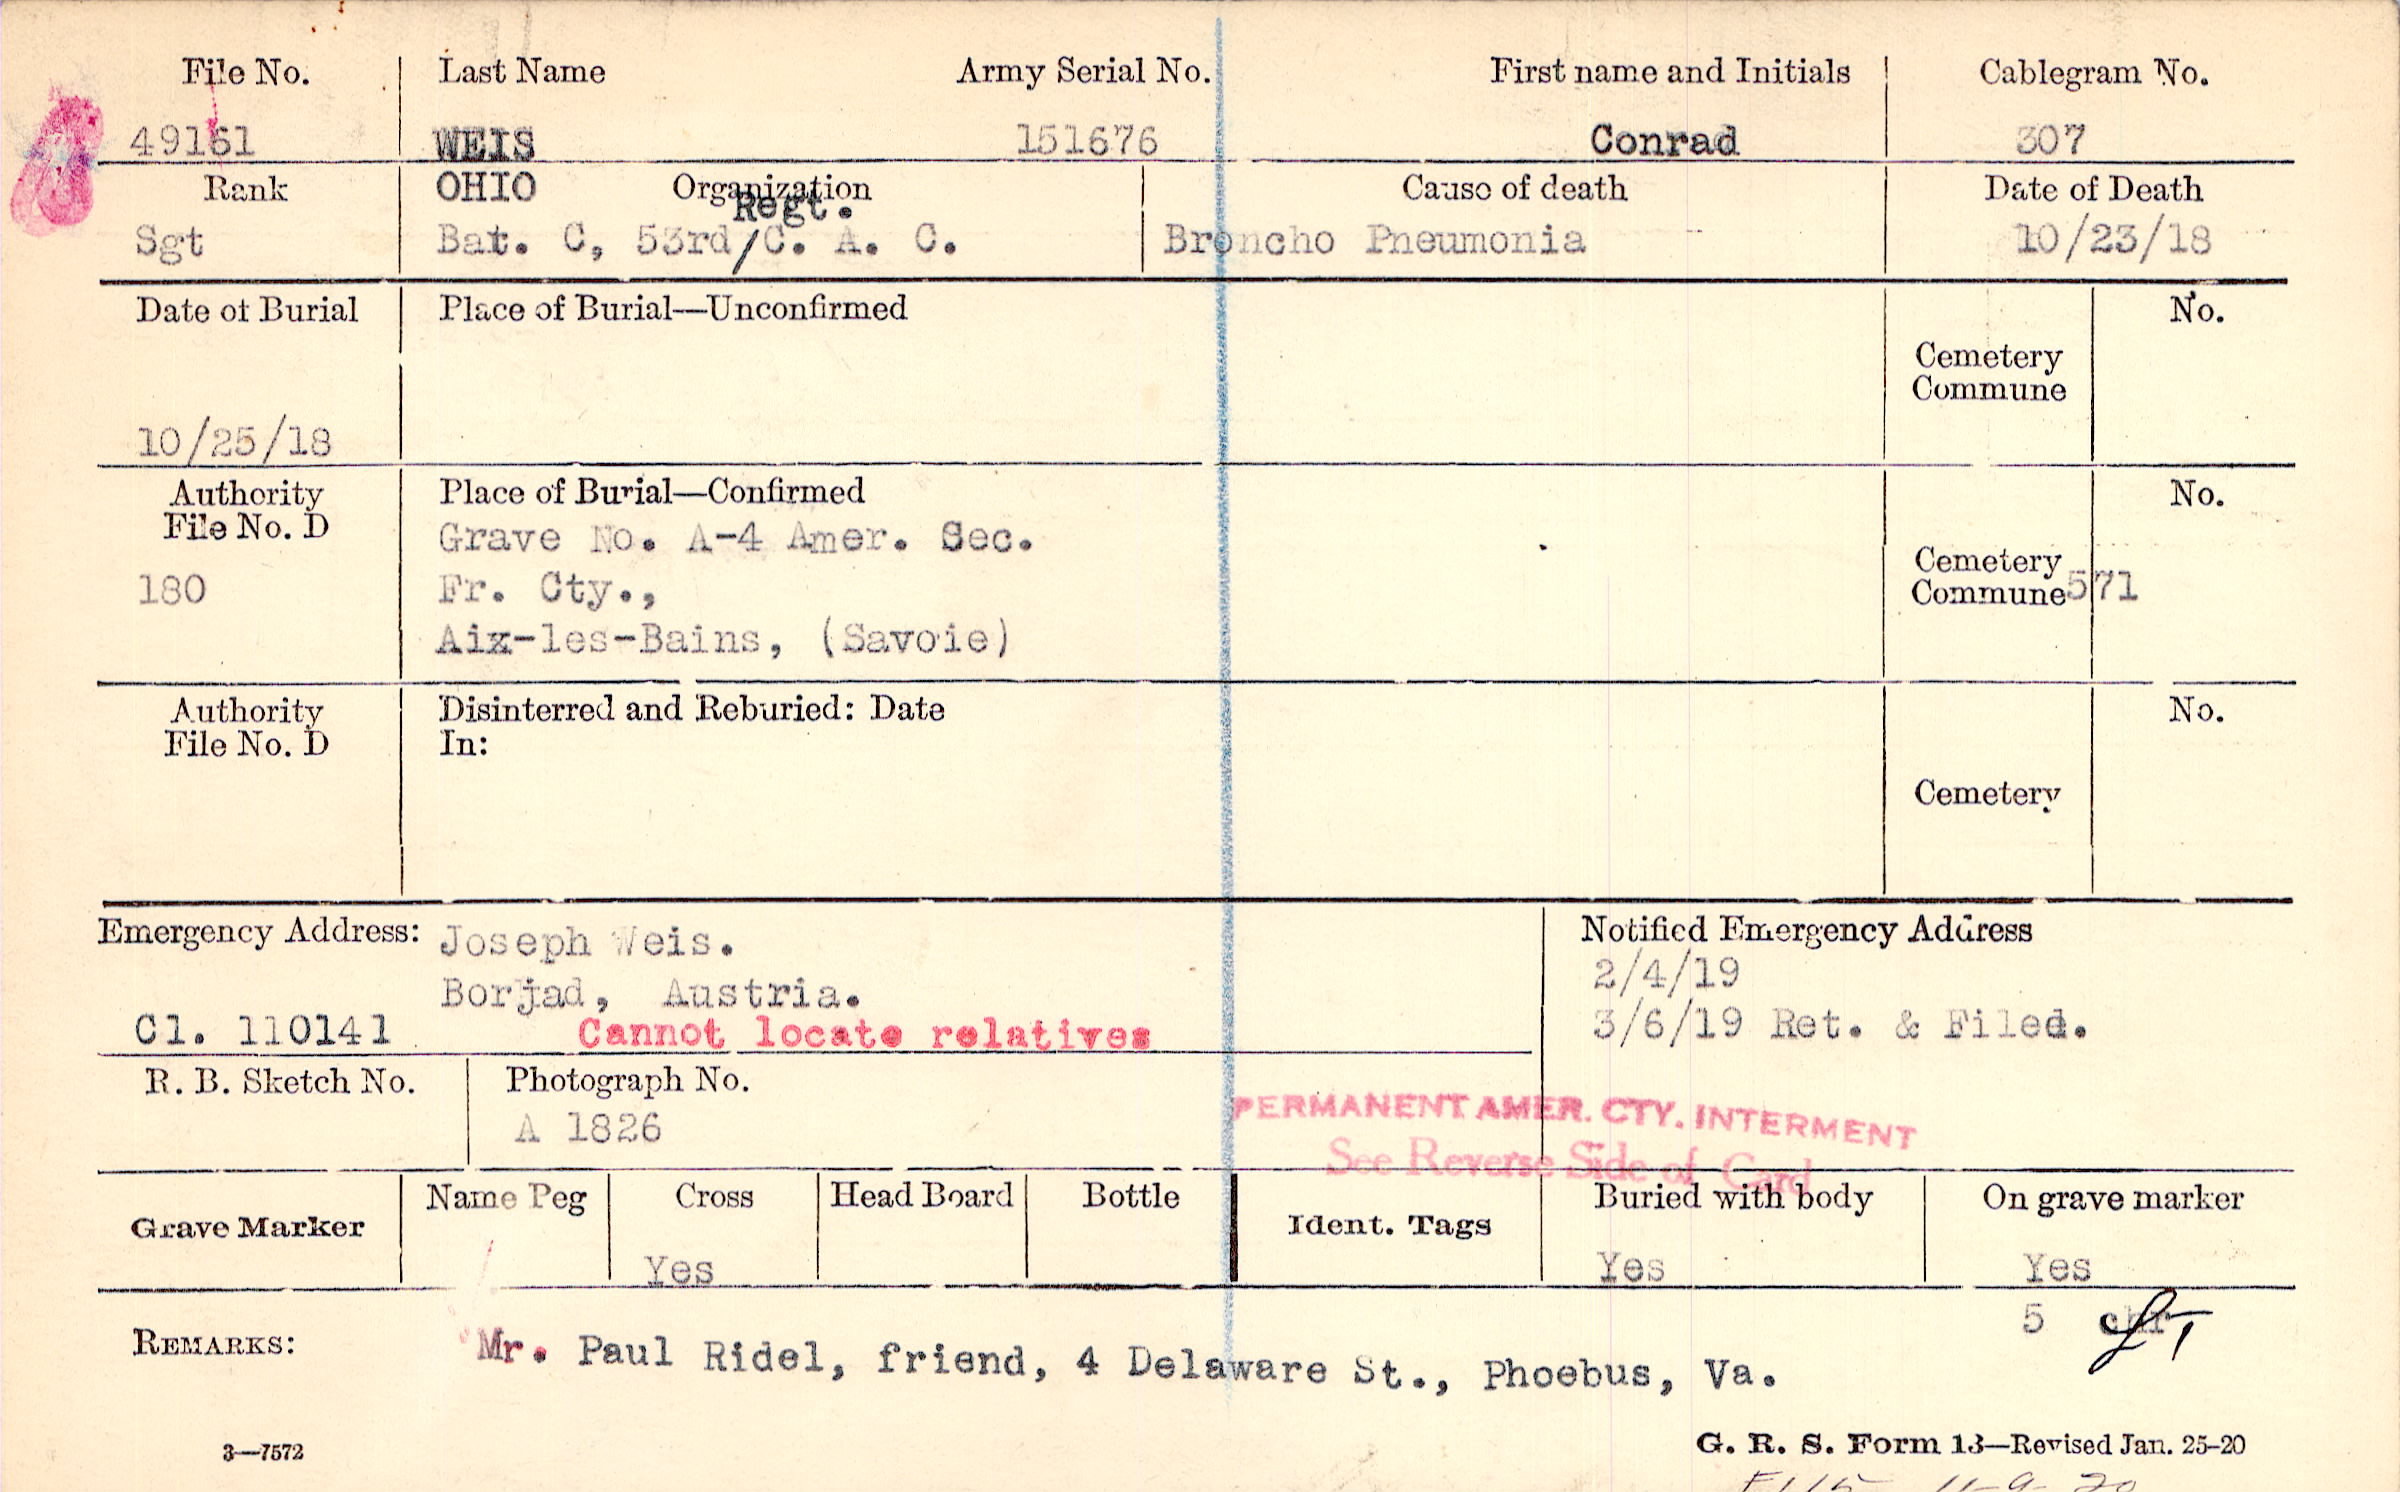 File No. Last Name Army Serial No. First name and Initials Cablegram No.
49161 WEIS 151676 Conrad 307
Rank OHIO Organization Cause of death Date of Death
Regt.
Sgt Bat. C, 53rd/C. A. C. Broncho Pneumonia 10/23/18
Date of Burial Place of Burial—Unconfirmed No.
Cemetery
Commune
10/25/18
Authority Place of Burial—Confirmed No.
File No. D Grave No. A-4 Amer. Sec.
180 Fr. Cty., Cemetery
Commune 571
Aix-les-Bains, (Savoie)
Authority Disinterred and Reburied: Date No.
File No. D In:
Cemetery
Emergency Address: Joseph Weis. Notified Emergency Address
Borjad, Austria. 2/4/19
Cl. 110141 Cannot locate relatives 3/6/19 Ret. & Filed.
R. B. Sketch No. Photograph No.
A 1826
PERMANENT AMER. CTY. INTERMENT
See Reverse Side of Card
Grave Marker Name Peg Cross Head Board Bottle Ident. Tags Buried with body On grave marker
Yes Yes Yes
5
REMARKS: Mr. Paul Ridel, friend, 4 Delaware St., Phoebus, Va.
3—7572 G. R. S. Form 13—Revised Jan. 25-20